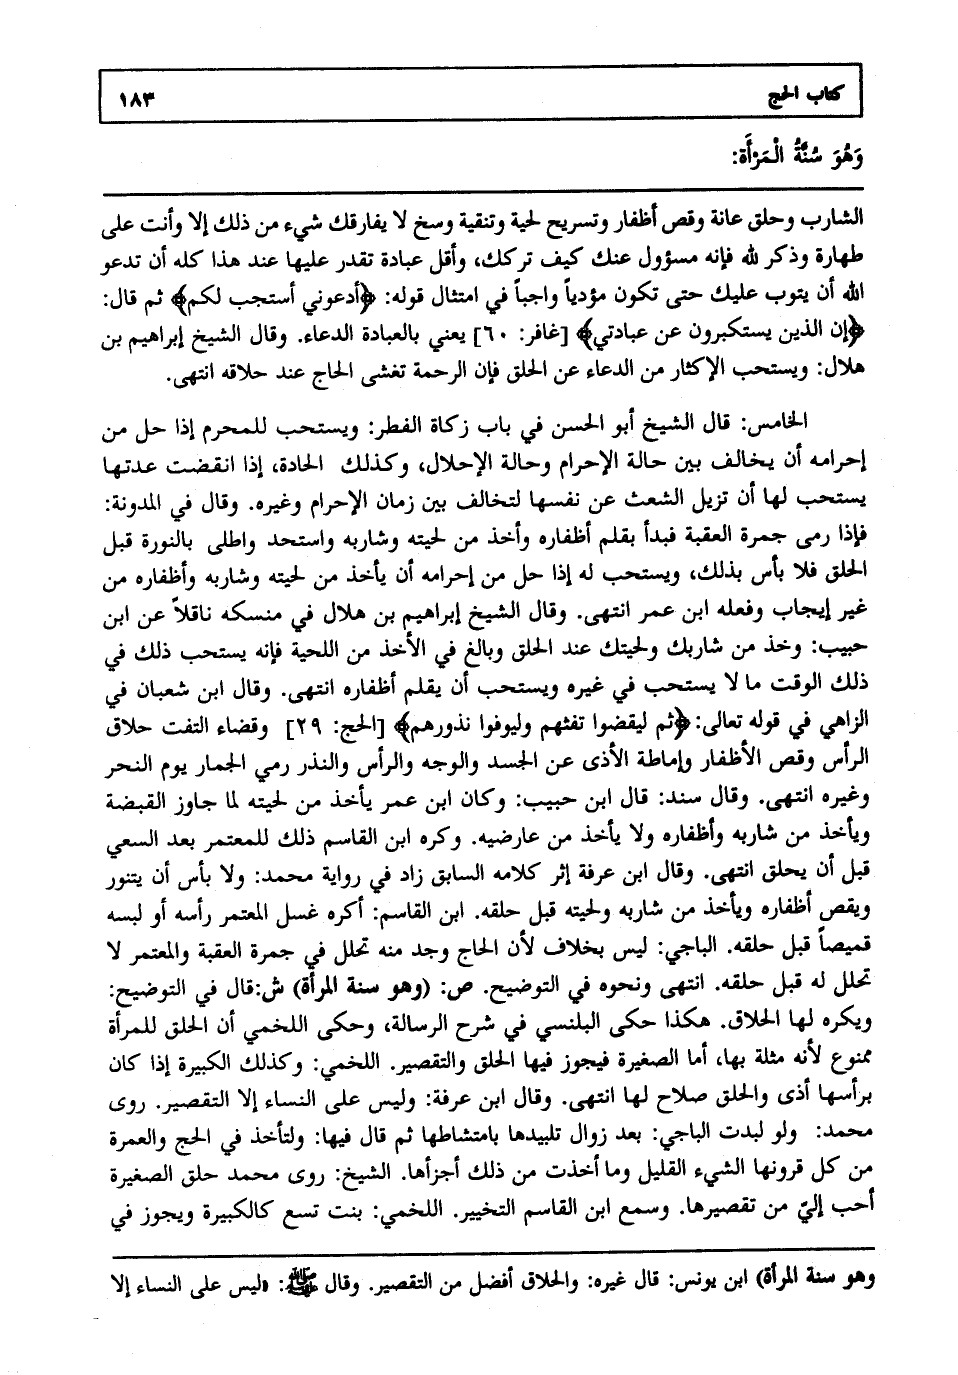 كتاب الحج ١٨٣
وَهُوَ سُنَّةُ الْمَرْأَةِ:
الشارب وحلق عانة وقص أظفار وتسريح لحية وتنقية وسخ لا يفارقك شيء من ذلك إلا وأنت على
طهارة وذكر لله فإنه مسؤول عنك كيف تركك، وأقل عبادة تقدر عليها عند هذا كله أن تدعو
الله أن يتوب عليك حتى تكون مؤدياً واجباً في امتثال قوله: ﴿أدعوني أستجب لكم﴾ ثم قال:
﴿إن الذين يستكبرون عن عبادتي﴾ [غافر: ٦٠] يعني بالعبادة الدعاء. وقال الشيخ إبراهيم بن
هلال: ويستحب الإكثار من الدعاء عن الحلق فإن الرحمة تغشى الحاج عند حلاقه انتهى.
الخامس: قال الشيخ أبو الحسن في باب زكاة الفطر: ويستحب للمحرم إذا حل من
إحرامه أن يخالف بين حالة الإحرام وحالة الإحلال، وكذلك الحادة، إذا انقضت عدتها
يستحب لها أن تزيل الشعث عن نفسها لتخالف بين زمان الإحرام وغيره. وقال في المدونة:
فإذا رمى جمرة العقبة فبدأ بقلم أظفاره وأخذ من لحيته وشاربه واستحد واطلى بالنورة قبل
الحلق فلا بأس بذلك، ويستحب له إذا حل من إحرامه أن يأخذ من لحيته وشاربه وأظفاره من
غير إيجاب وفعله ابن عمر انتهى. وقال الشيخ إبراهيم بن هلال في منسكه ناقلاً عن ابن
حبيب: وخذ من شاربك ولحيتك عند الحلق وبالغ في الأخذ من اللحية فإنه يستحب ذلك في
ذلك الوقت ما لا يستحب في غيره ويستحب أن يقلم أظفاره انتهى. وقال ابن شعبان في
الزاهي في قوله تعالى: ﴿ثم ليقضوا تفثهم وليوفوا نذورهم﴾ [الحج: ٢٩] وقضاء التفت حلاق
الرأس وقص الأظفار وإماطة الأذى عن الجسد والوجه والرأس والنذر رمي الجمار يوم النحر
وغيره انتهى. وقال سند: قال ابن حبيب: وكان ابن عمر يأخذ من لحيته لما جاوز القبضة
ويأخذ من شاربه وأظفاره ولا يأخذ من عارضيه. وكره ابن القاسم ذلك للمعتمر بعد السعي
قبل أن يحلق انتهى. وقال ابن عرفة إثر كلامه السابق زاد في رواية محمد: ولا بأس أن يتنور
ويقص أظفاره ويأخذ من شاربه ولحيته قبل حلقه. ابن القاسم: أكره غسل المعتمر رأسه أو لبسه
قميصاً قبل حلقه. الباجي: ليس بخلاف لأن الحاج وجد منه تحلل في جمرة العقبة والمعتمر لا
تحلل له قبل حلقه. انتهى ونحوه في التوضيح. ص: (وهو سنة المرأة) ش:قال في التوضيح:
ويكره لها الحلاق. هكذا حكى البلنسي في شرح الرسالة، وحكى اللخمي أن الحلق للمرأة
ممنوع لأنه مثلة بها، أما الصغيرة فيجوز فيها الحلق والتقصير. اللخمي: وكذلك الكبيرة إذا كان
برأسها أذى والحلق صلاح لها انتهى. وقال ابن عرفة: وليس على النساء إلا التقصير. روى
محمد: ولو لبدت الباجي: بعد زوال تلبيدها بامتشاطها ثم قال فيها: ولتأخذ في الحج والعمرة
من كل قرونها الشيء القليل وما أخذت من ذلك أجزأها. الشيخ: روى محمد حلق الصغيرة
أحب إليّ من تقصيرها. وسمع ابن القاسم التخيير. اللخمي: بنت تسع كالكبيرة ويجوز في
وهو سنة المرأة) ابن يونس: قال غيره: والحلاق أفضل من التقصير. وقال ﷺ: «ليس على النساء إلا